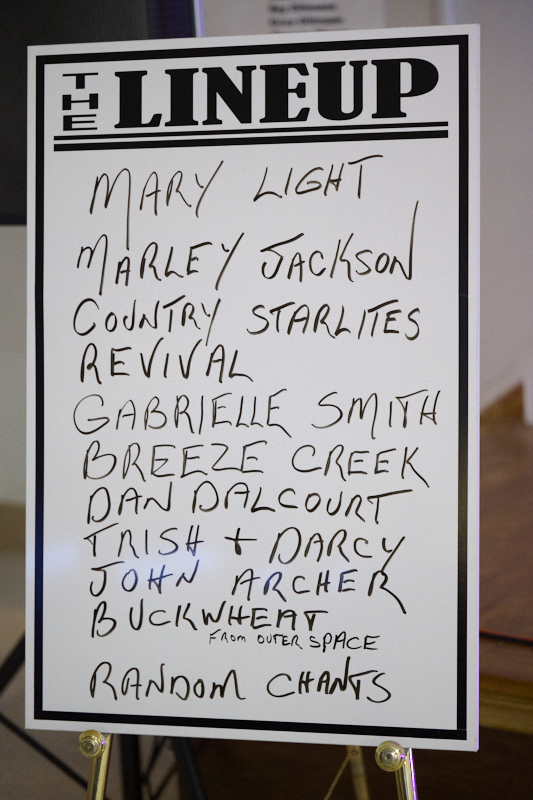 THE LINEUP
MARY LIGHT
MARLEY JACKSON
COUNTRY STARLITES
REVIVAL
GABRIELLE SMITH
BREEZE CREEK
DAN DALCOURT
TRISH + DARCY
JOHN ARCHER
BUCKWHEAT
FROM OUTER SPACE
RANDOM CHANTS